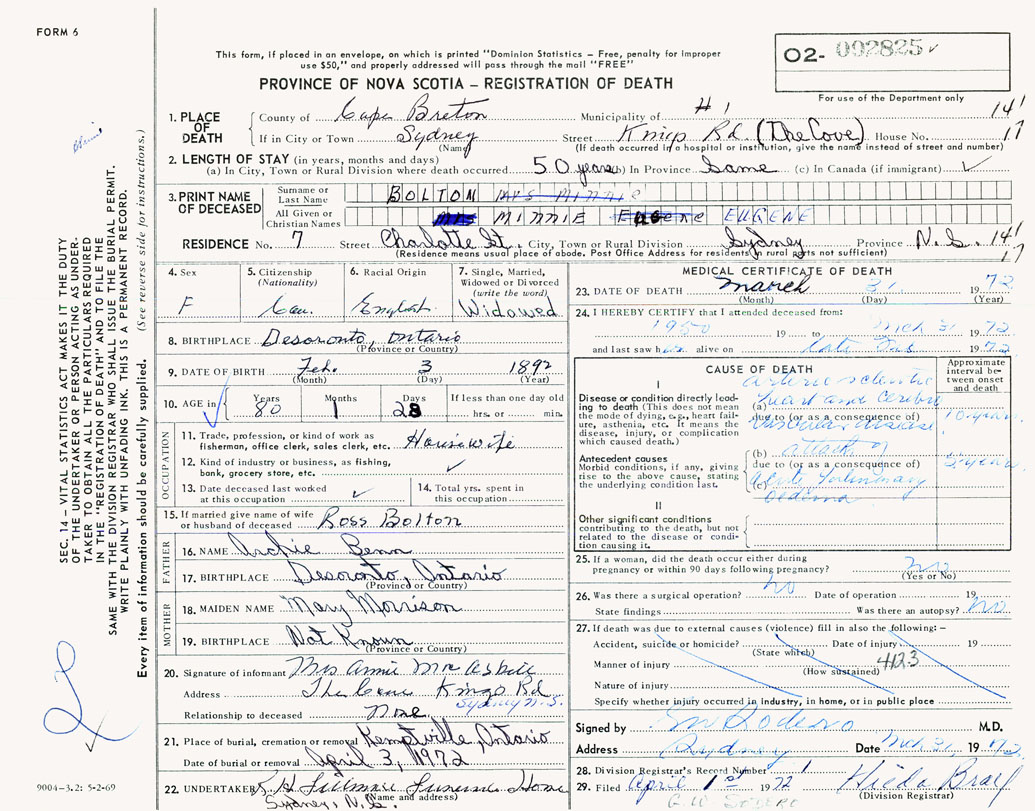 FORM 6
This form, if placed in an envelope, on which is printed "Dominion Statistics – Free, penalty for improper
use $50," and properly addressed will pass through the mail "FREE"
O2- 002825
For use of the Department only
PROVINCE OF NOVA SCOTIA – REGISTRATION OF DEATH
1. PLACE OF DEATH
County of Cape Breton Municipality of #1 14'
If in City or Town Sydney Street Kings Rd (The Cove) House No. 17
(Name) (If death occurred in a hospital or institution, give the name instead of street and number)
2. LENGTH OF STAY (in years, months and days)
(a) In City, Town or Rural Division where death occurred 50 years (b) In Province Same (c) In Canada (if immigrant)
3. PRINT NAME OF DECEASED
Surname or Last Name BOLTON MRS MINNIE
All Given or Christian Names MRS MINNIE EUGENE EUGENE
RESIDENCE No. 7 Street Charlotte St. City, Town or Rural Division Sydney Province N.S. 14' 17
(Residence means usual place of abode. Post Office Address for residents in rural parts not sufficient)
4. Sex F
5. Citizenship (Nationality) Can.
6. Racial Origin English
7. Single, Married, Widowed or Divorced (write the word) Widowed
8. BIRTHPLACE Desoronto, Ontario
(Province or Country)
9. DATE OF BIRTH Feb. 3 1892
(Month) (Day) (Year)
10. AGE in Years 80 Months 1 Days 28 If less than one day old hrs. or min.
OCCUPATION
11. Trade, profession, or kind of work as
fisherman, office clerk, sales clerk, etc. Housewife
12. Kind of industry or business, as fishing,
bank, grocery store, etc.
13. Date deceased last worked
at this occupation
14. Total yrs. spent in
this occupation
15. If married give name of wife
or husband of deceased Ross Bolton
FATHER
16. NAME Archie Benn
17. BIRTHPLACE Desoronto, Ontario
(Province or Country)
MOTHER
18. MAIDEN NAME Mary Morrison
19. BIRTHPLACE Not Known
(Province or Country)
20. Signature of informant Mrs Annie
Address The Cove Kings Rd
Sydney N.S.
Relationship to deceased
21. Place of burial, cremation or removal Kemptville, Ontario
Date of burial or removal April 3, 1972
22. UNDERTAKER Funeral Home
Sydney, N.S. (Name and address)
MEDICAL CERTIFICATE OF DEATH
23. DATE OF DEATH March 31 1972
(Month) (Day) (Year)
24. I HEREBY CERTIFY that I attended deceased from:
1950 19 to Mch 31 1972
and last saw her alive on late 1972
CAUSE OF DEATH
Approximate interval between onset and death
I
Disease or condition directly leading
to death (This does not mean
the mode of dying, e.g., heart failure,
asthenia, etc. It means the
disease, injury, or complication
which caused death.)
arteriosclerotic
(a) heart and cerebro
due to (or as a consequence of) 10 years
vascular disease
Antecedent causes
Morbid conditions, if any, giving
rise to the above cause, stating
the underlying condition last.
(b) attack of
due to (or as a consequence of)
(c) Acute Pulmonary
Oedema
II
Other significant conditions
contributing to the death, but not
related to the disease or condition
causing it.
25. If a woman, did the death occur either during
pregnancy or within 90 days following pregnancy? no
(Yes or No)
26. Was there a surgical operation? no Date of operation 19
State findings Was there an autopsy? no
27. If death was due to external causes (violence) fill in also the following: –
Accident, suicide or homicide? Date of injury 19
(State which)
Manner of injury 4123
(How sustained)
Nature of injury
Specify whether injury occurred in industry, in home, or in public place
Signed by M.D.
Address Sydney Date Mch 31 1972
28. Division Registrar's Record Number 1
29. Filed April 1st 1972
(Division Registrar)
G.W. SODERO
SEC. 14 – VITAL STATISTICS ACT MAKES IT THE DUTY
OF THE UNDERTAKER OR PERSON ACTING AS UNDERTAKER
TO OBTAIN ALL THE PARTICULARS REQUIRED
IN THE "REGISTRATION OF DEATH" AND TO FILE THE
SAME WITH THE DIVISION REGISTRAR WHO SHALL ISSUE THE BURIAL PERMIT.
WRITE PLAINLY WITH UNFADING INK. THIS IS A PERMANENT RECORD.
Every item of information should be carefully supplied. (See reverse side for instructions.)
9004–3.2: 5-2-69